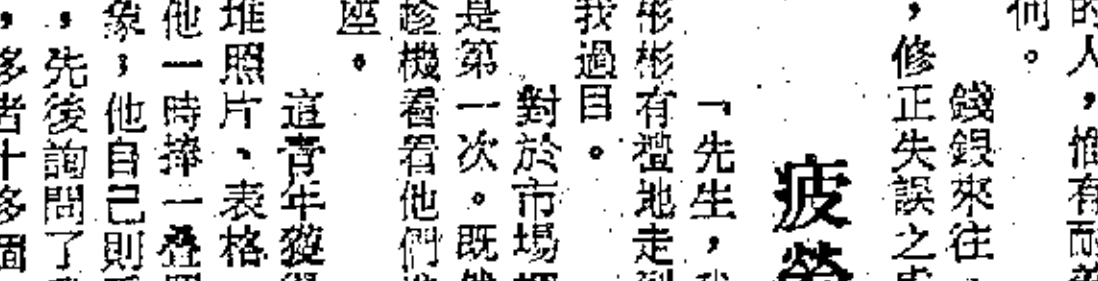 的人，惟有耐
何。
錢銀來往，
，修正失誤之
疲勞
「先生，我
彬彬有禮地走到
我過目。
對於市場
是第一次。既然
趁機看看他們
座。
這青年獲得
堆照片、表格
他一時捧一叠照
象；他自己則
，先後詢問了
，多者十多個